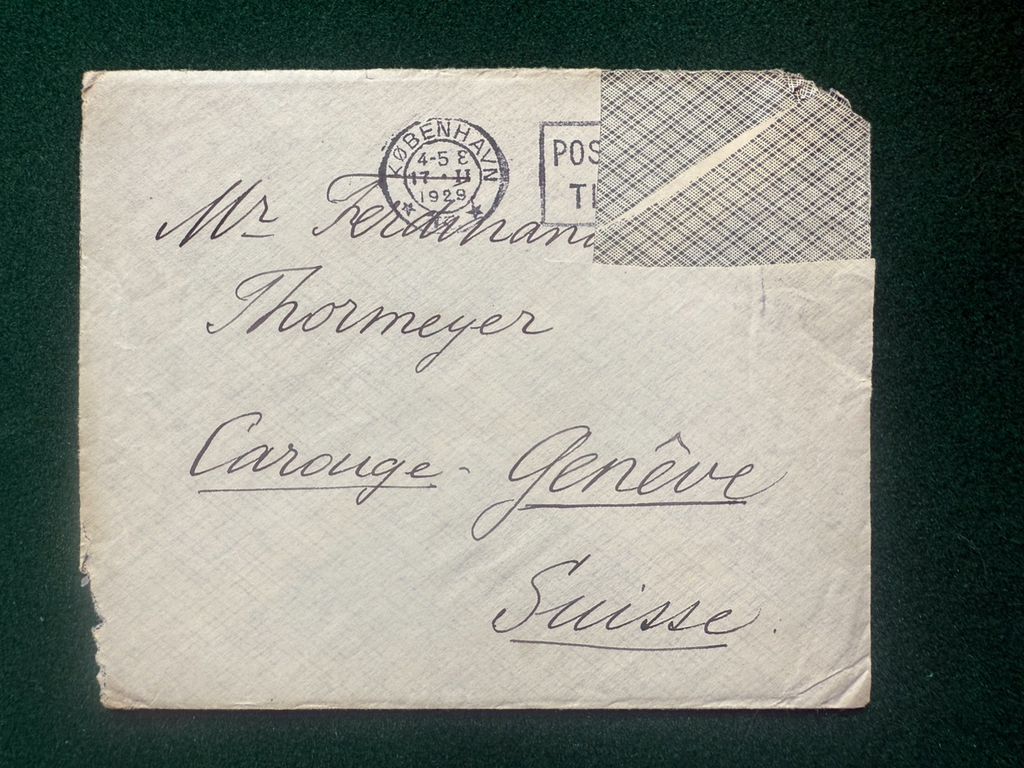 KØBENHAVN
4-5 E
17 • II
1929
POS
TI
Mr Ferdinan
Thormeyer
Carouge - Genêve
Suisse.